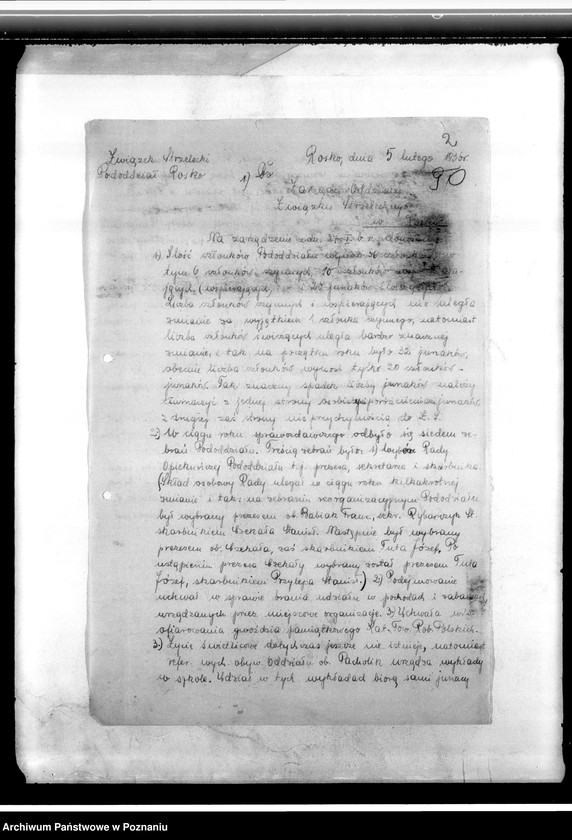 2
Związek Strzelecki
Rosko, dnia 5 lutego 1936r
Pododdział Rosko
90
1) Do
Zarządu Oddziału
Związku Strzeleckiego
w
Na zarządzenie z dn. b.r. donosimy
1) Ilość członków Pododdziału wynosi 36 członków
tym 6 członków czynnych, 10 członków
jących, (wspierających) i 20 junaków
Liczba członków czynnych i wspierających nie uległa
zmianie za wyjątkiem 1 członka czynnego, natomiast
liczba członków ćwiczących uległa bardzo znacznej
zmianie, i tak na początku roku było 32 junaków,
obecnie liczba członków wynosi tylko 20 członków-
junaków. Tak znaczny spadek liczby junaków należy
tłumaczyć z jednej strony junaków
z drugiej zaś strony nieprzychylnością do Z. S.
2) W ciągu roku sprawozdawczego odbyło się siedem ze-
brań Pododdziału. Treścią zebrań było: 1) wybór Rady
Opiekuńczej Pododdziału t.j. prezesa, sekretarza i skarbnika.
(Skład osobowy Rady ulegał w ciągu roku kilkakrotnej
zmianie i tak: na zebraniu reorganizacyjnym Pododdziału
był wybrany prezesem ob. Babiak Franc., sekr. Rybarczyk St.
skarbnikiem Czekała Stanisł. Następnie był wybrany
prezesem ob. Czekała, zaś skarbnikiem Tuła Józef. Po
ustąpieniu prezesa Czekały wybrany został prezesem Tuła
Józef, skarbnikiem Przylepa Stanisł.) 2) Podejmowanie
uchwał w sprawie brania udziału w pochodach i zabawach,
urządzanych przez miejscowe organizacje. 3) Uchwała w
ofiarowania gwoździa pamiątkowego Kat. Tow. Rob. Polskich.
3) Życie świetlicowe dotychczas jeszcze nie istnieje, natomiast
refer. wych. obyw. Oddziału ob. Pacholik urządza wykłady
w szkole. Udział w tych wykładach biorą sami junacy
Archiwum Państwowe w Poznaniu